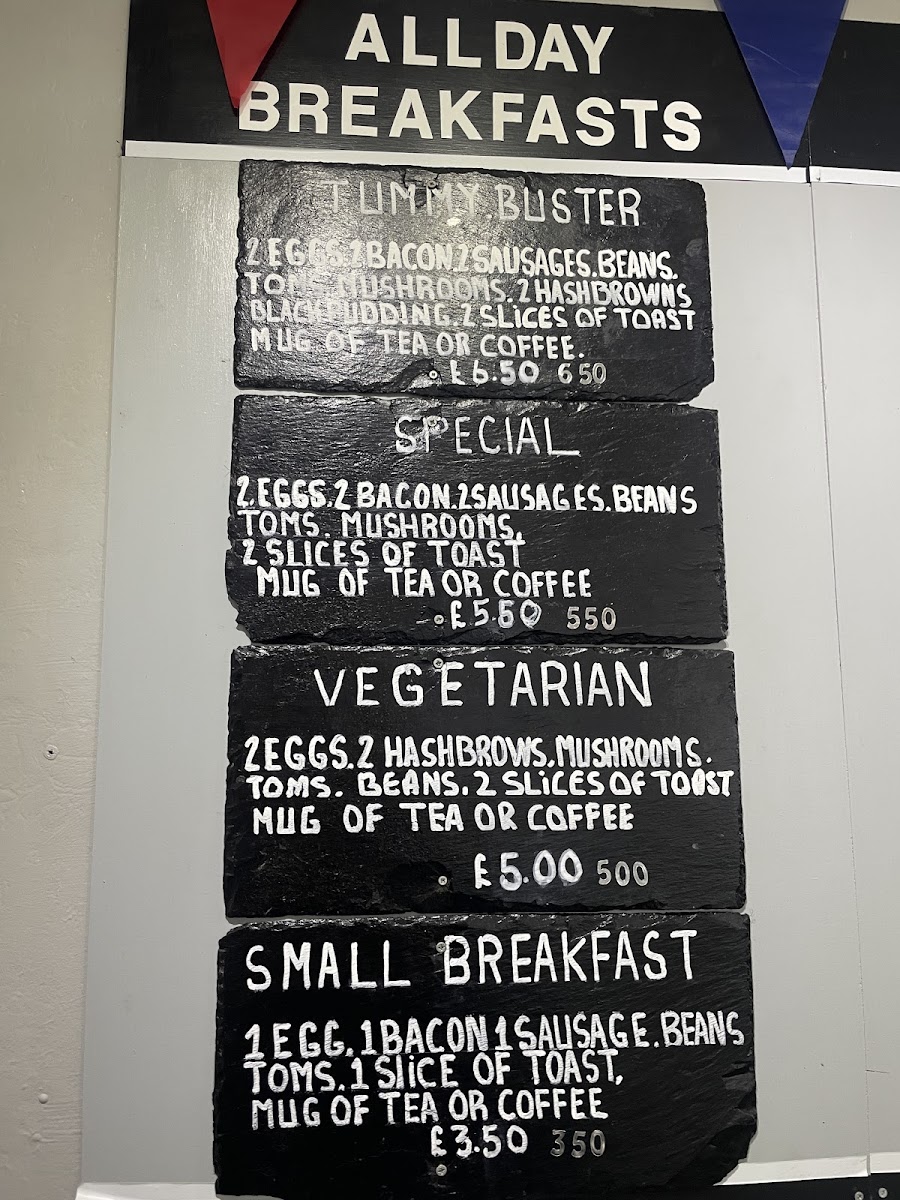 ALL DAY
BREAKFASTS
TUMMY.BUSTER
2 EGGS.2 BACON.2 SAUSAGES.BEANS.
TOMS. MUSHROOMS. 2 HASHBROWNS
BLACK PUDDING. 2 SLICES OF TOAST
MUG OF TEA OR COFFEE.
£6.50 650
SPECIAL
2.EGGS.2 BACON.2 SAUSAGES.BEANS
TOMS. MUSHROOMS.
2 SLICES OF TOAST
MUG OF TEA OR COFFEE
£5.50 550
VEGETARIAN
2 EGGS.2 HASHBROWS.MUSHROOMS.
TOMS. BEANS. 2 SLICES OF TOAST
MUG OF TEA OR COFFEE
£5.00 500
SMALL BREAKFAST
1 EGG. 1 BACON 1 SAUSAGE. BEANS
TOMS. 1 SLICE OF TOAST,
MUG OF TEA OR COFFEE
£3.50 350